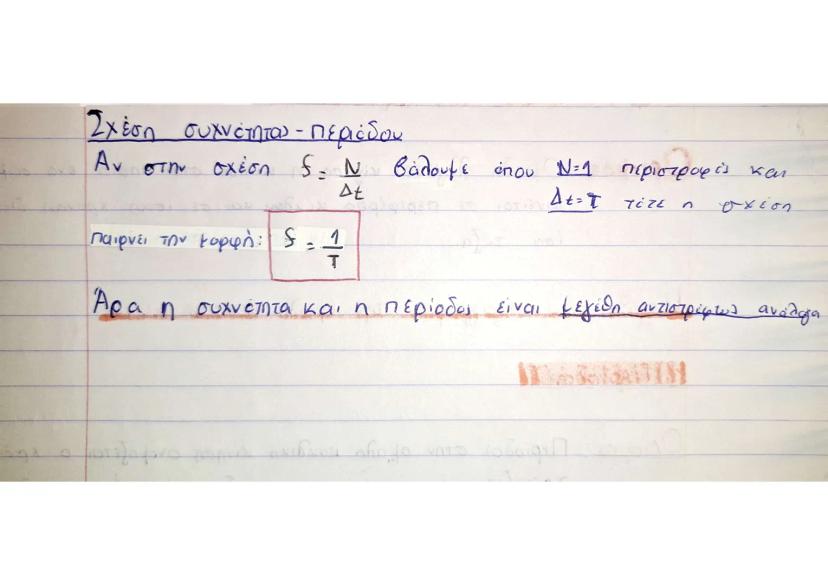 Σχέση συχνότητας - περιόδου
Αν στην σχέση f = N/Δt βάλουμε όπου N=1 περιστροφές και
Δt=T τότε η σχέση
παίρνει την μορφή: f = 1/T
Άρα η συχνότητα και η περίοδος είναι μεγέθη αντιστρόφως ανάλογα